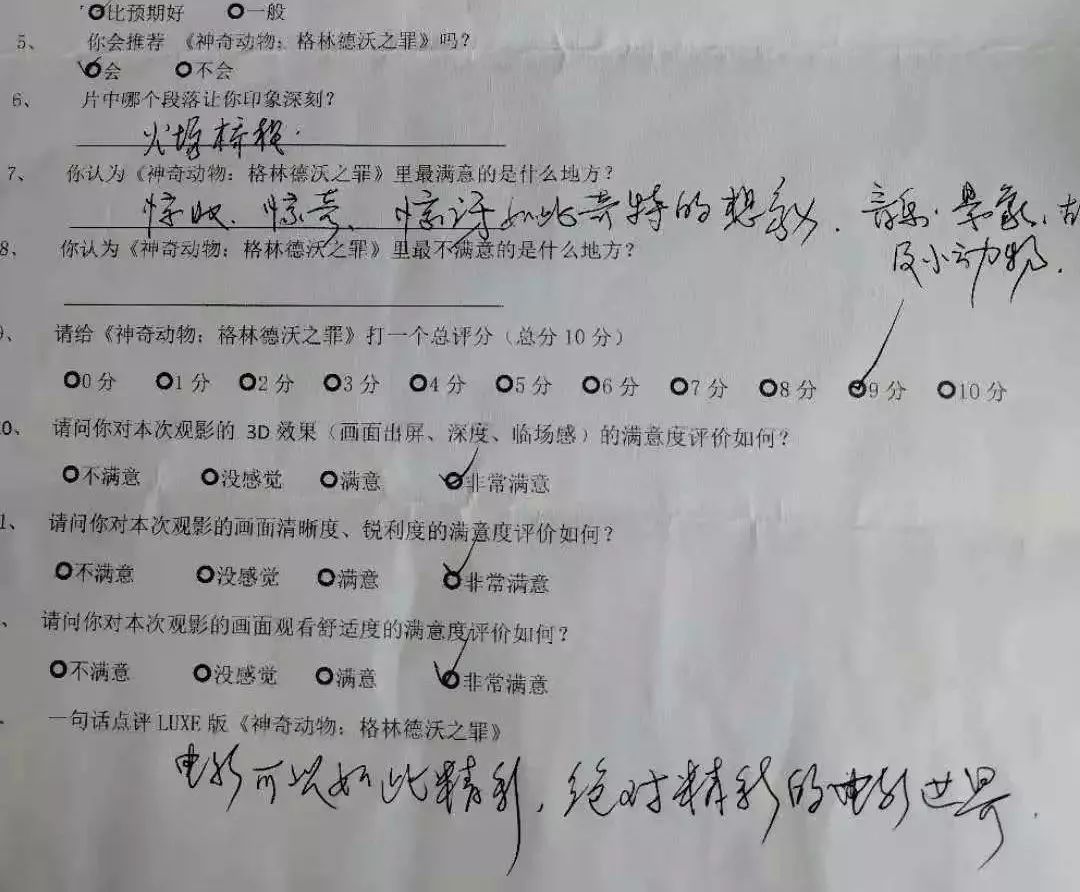 比预期好 一般
5、 你会推荐 《神奇动物：格林德沃之罪》吗？
会 不会
6、 片中哪个段落让你印象深刻？
火场
7、 你认为《神奇动物：格林德沃之罪》里最满意的是什么地方？
惊奇、惊讶如此奇特的想象．音乐．
及小动物．
8、 你认为《神奇动物：格林德沃之罪》里最不满意的是什么地方？
、 请给《神奇动物：格林德沃之罪》打一个总评分（总分10分）
0分 1分 2分 3分 4分 5分 6分 7分 8分 9分 10分
0、 请问你对本次观影的 3D 效果（画面出屏、深度、临场感）的满意度评价如何？
不满意 没感觉 满意 非常满意
1、 请问你对本次观影的画面清晰度、锐利度的满意度评价如何？
不满意 没感觉 满意 非常满意
、 请问你对本次观影的画面观看舒适度的满意度评价如何？
不满意 没感觉 满意 非常满意
一句话点评 LUXE 版《神奇动物：格林德沃之罪》
电影可以如此精彩，绝对精彩的电影世界．